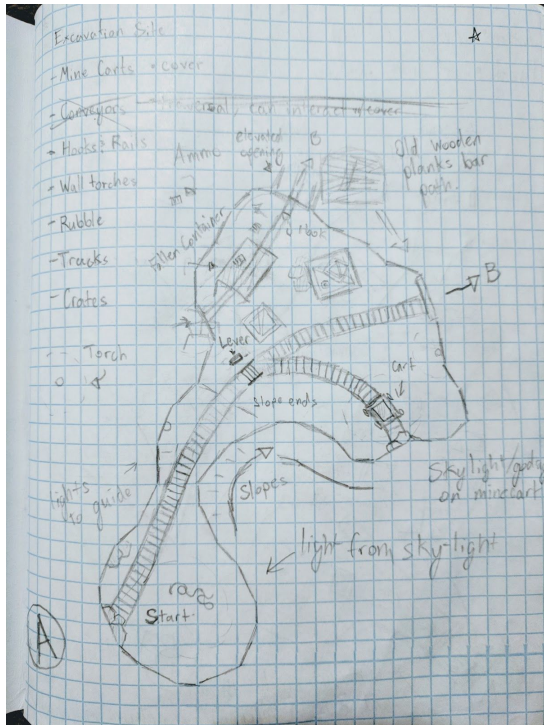 Excavation Site
- Mine Carts • cover
- Conveyors → universal, can interact w/ cover
- Hooks? Rails
- Wall torches
- Rubble
- Tracks
- Crates
Torch
Ammo
elevated
opening
B
Old wooden
planks bar
path.
Fallen Container
hook
B
Lever
Cart
Slope ends
lights
to guide
Slopes
Skylight/
on minecart
light from sky-light
Start
A